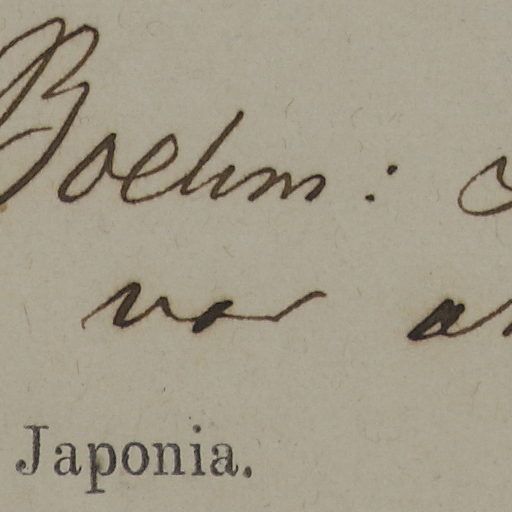 Boehm:
var
Japonia.